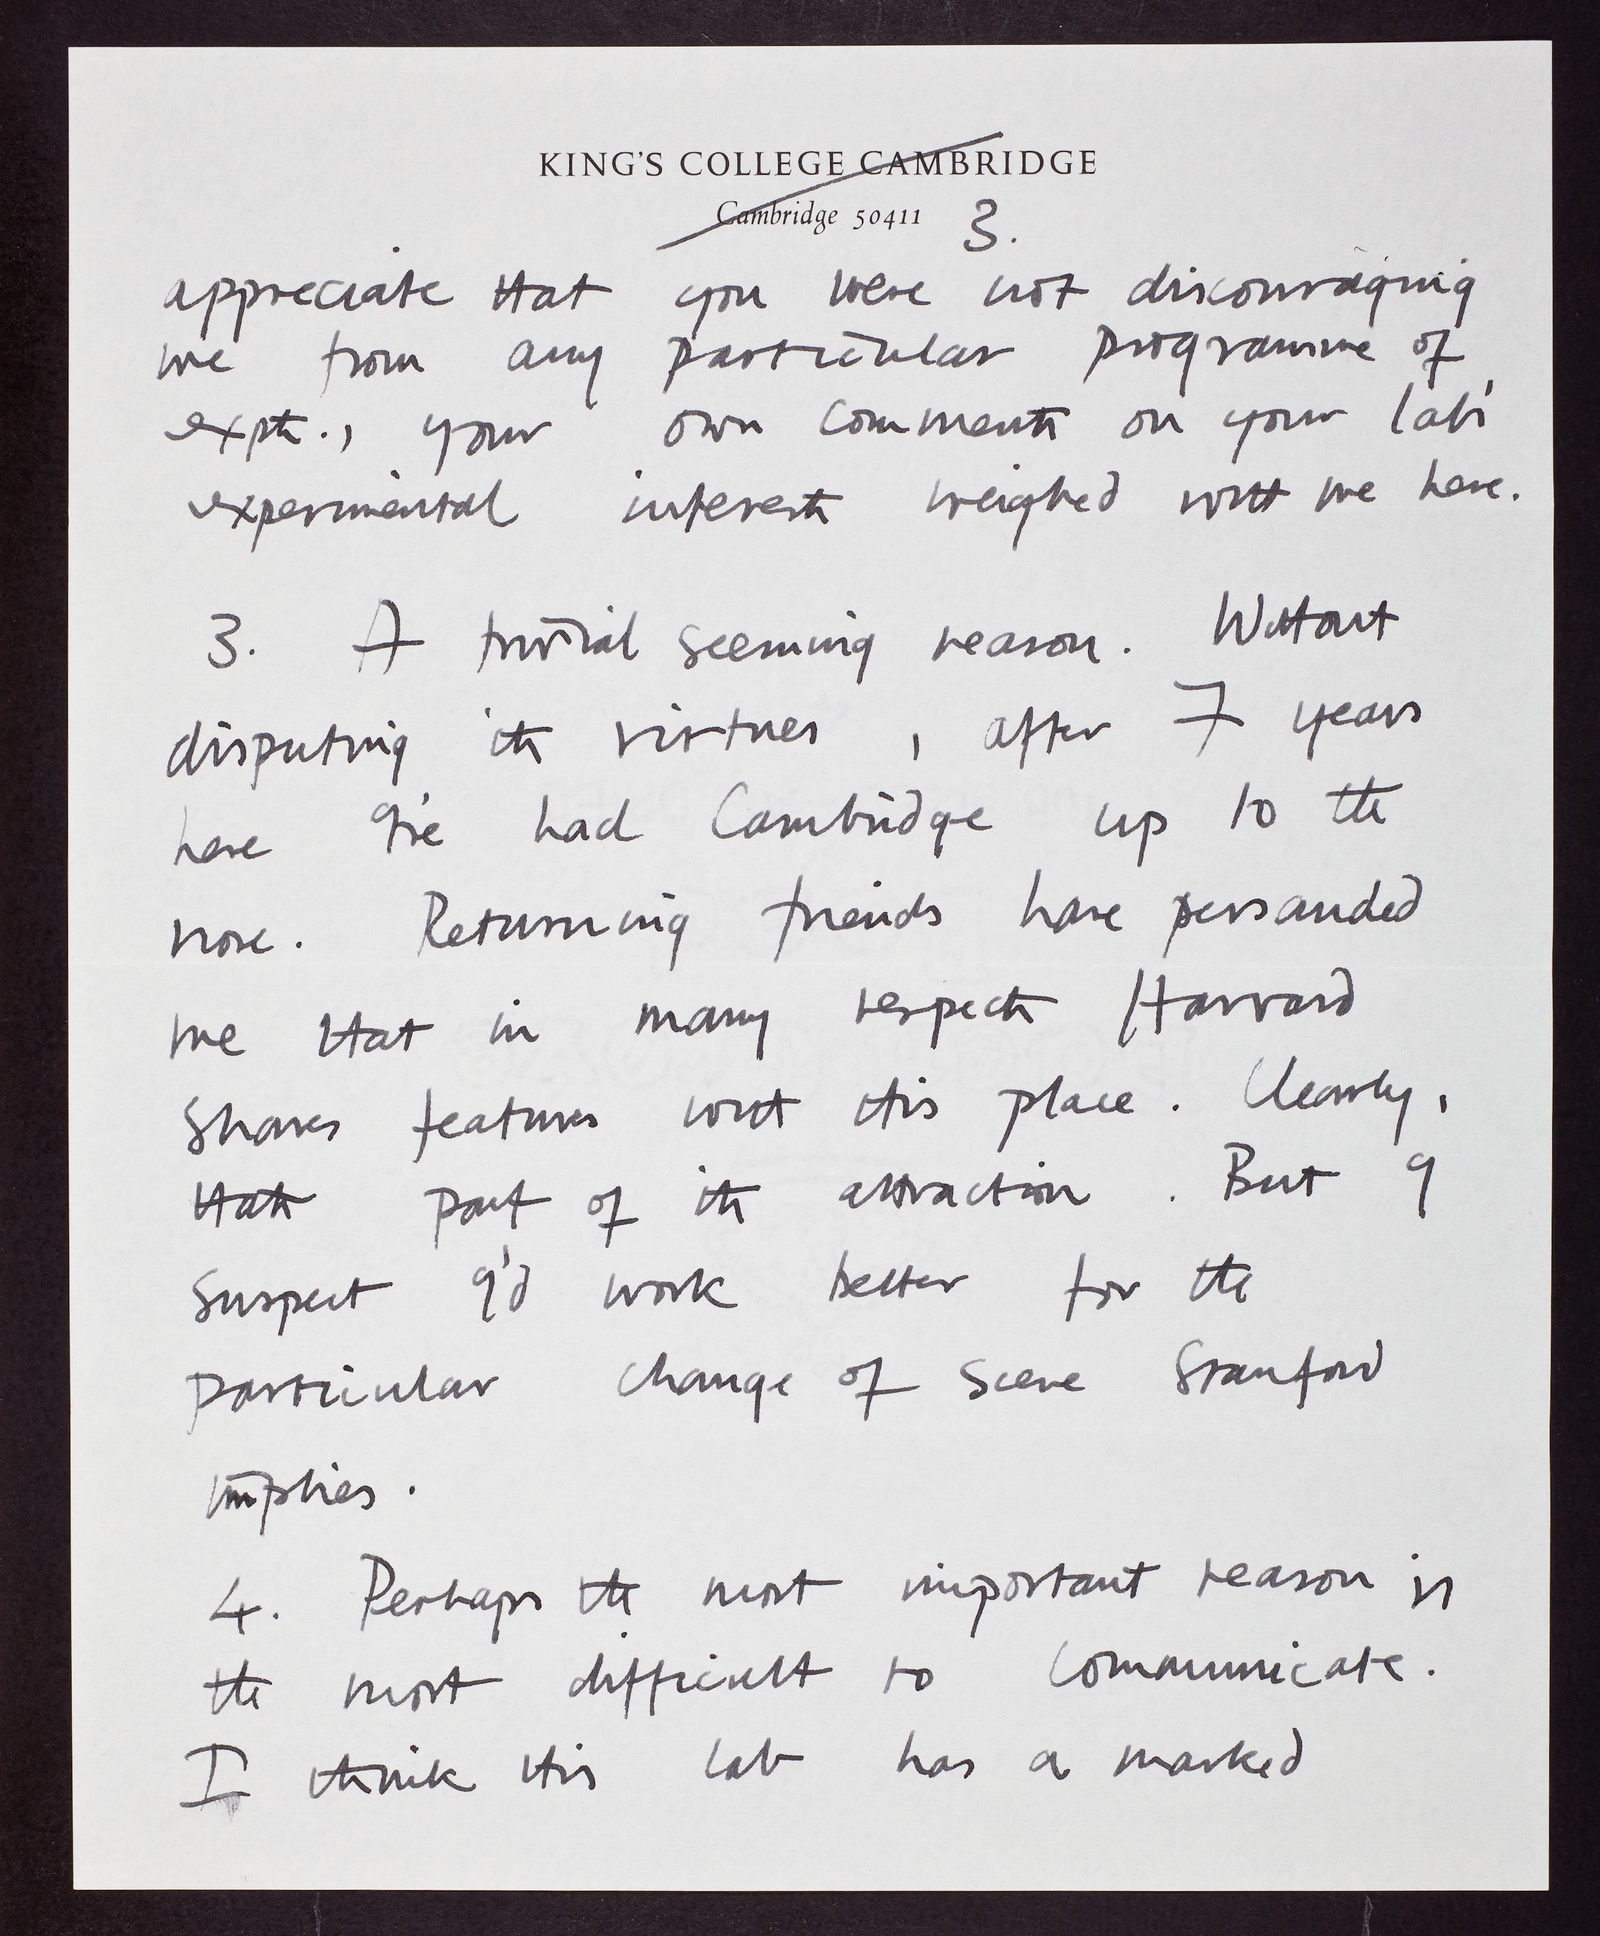 KING'S COLLEGE CAMBRIDGE
Cambridge 50411
3.
appreciate that you were not discouraging
me from any particular programme of
expts., your own comments on your lab's
experimental interests weighed with me here.
3. A trivial seeming reason. Without
disputing its virtues, after 7 years
here I've had Cambridge up to the
nose. Returning friends have persauded
me that in many respects Harvard
shares features with this place. Clearly,
thats part of its attraction. But I
suspect I'd work better for the
particular change of scene Stanford
implies.
4. Perhaps the most important reason is
the most difficult to communicate.
I think this lab has a marked